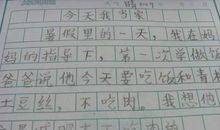 今天我当家
暑假里的一天，我在妈
妈的指导下，第一次学做饭
爸爸说他今天要吃饭和青
土豆丝，不吃肉。我想他